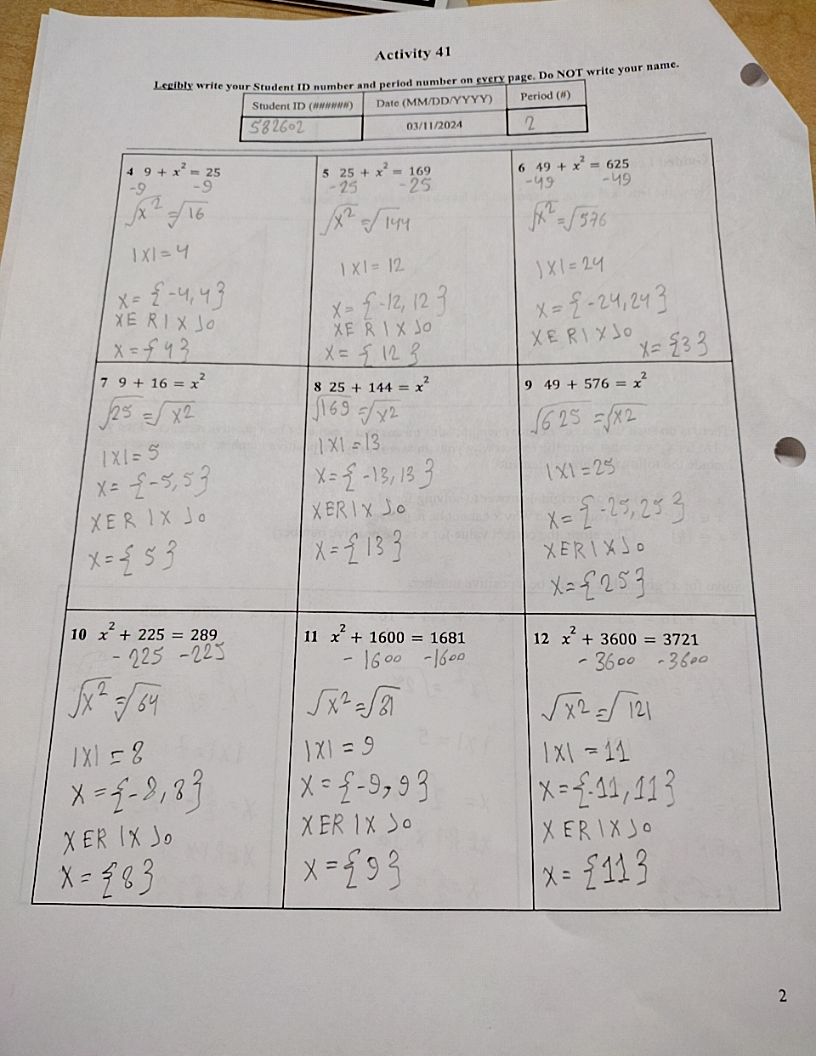 Activity 41
Legibly write your Student ID number and period number on every page. Do NOT write your name.
Student ID (######) Date (MM/DD/YYYY) Period (#)
582602 03/11/2024 2
4 9 + x² = 25
-9 -9
√x² = √16
|x| = 4
x = {-4, 4}
X E R | X > 0
x = {4}
5 25 + x² = 169
-25 -25
√x² = √144
|x| = 12
x = {-12, 12}
X E R | X > 0
x = {12}
6 49 + x² = 625
-49 -49
√x² = √576
|x| = 24
x = {-24, 24}
X E R | X > 0
x = {3}
7 9 + 16 = x²
√25 = √x²
|x| = 5
x = {-5, 5}
X E R | X > 0
x = {5}
8 25 + 144 = x²
√169 = √x²
|x| = 13
x = {-13, 13}
X E R | X > 0
x = {13}
9 49 + 576 = x²
√625 = √x²
|x| = 25
x = {-25, 25}
X E R | X > 0
x = {25}
10 x² + 225 = 289
-225 -225
√x² = √64
|x| = 8
x = {-8, 8}
X E R | X > 0
x = {8}
11 x² + 1600 = 1681
-1600 -1600
√x² = √81
|x| = 9
x = {-9, 9}
X E R | X > 0
x = {9}
12 x² + 3600 = 3721
-3600 -3600
√x² = √121
|x| = 11
x = {-11, 11}
X E R | X > 0
x = {11}
2